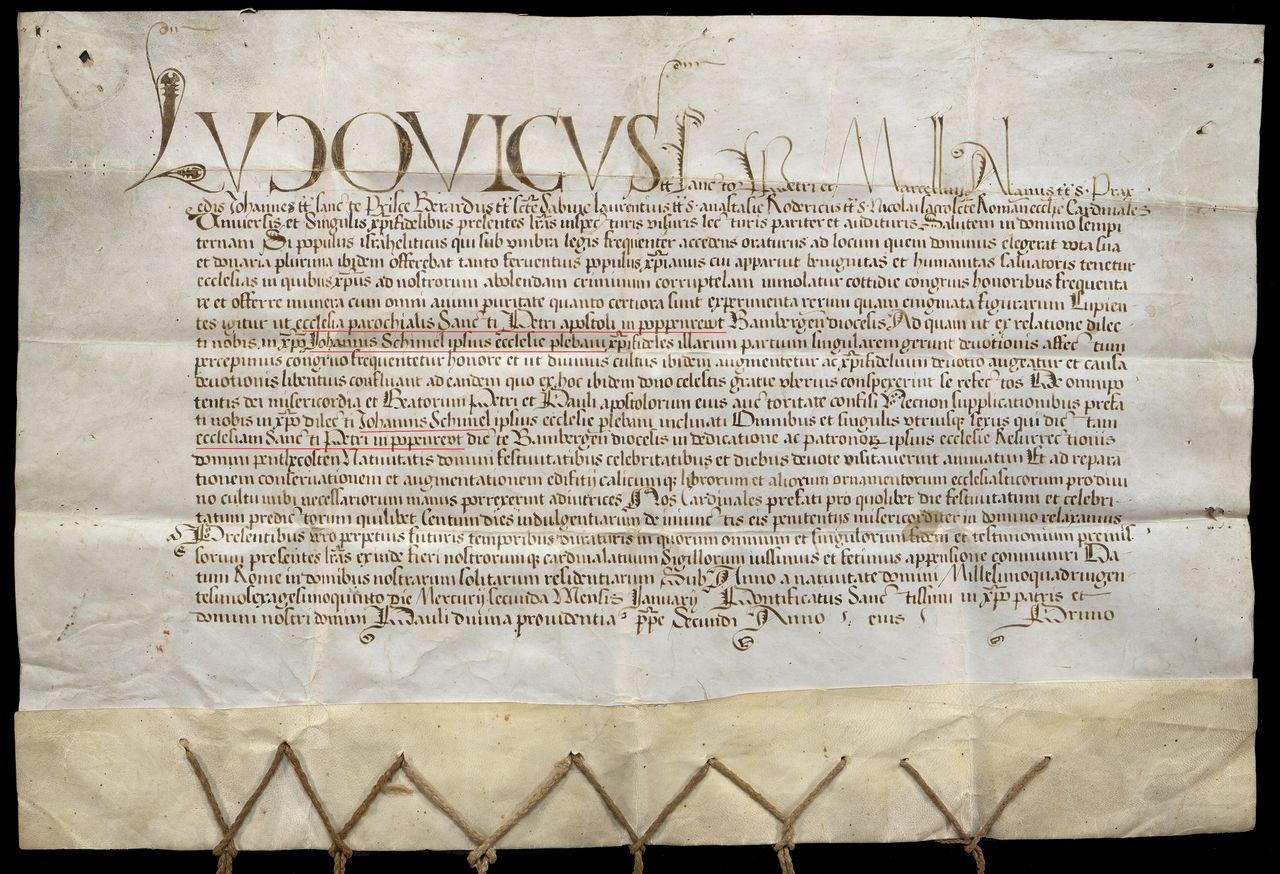 LUDOVICUS tt̃ Sanctorum Petri et Marcellini Alanus tt̃ s. Prax
edis Johannes tt̃ sancte Prisce Berardus tt̃ sctẽ Sabine Laurentius tt̃ s. anastasie Rodericus tt̃ s. Nicolai sacrosctẽ Romane ecclie Cardinales
Universis et Singulis xp̃ifidelibus presentes lr̃as inspecturis visuris lecturis pariter et audituris Salutem in domino sempi
ternam Si populus israheliticus qui sub umbra legis frequenter accedens oraturus ad locum quem dominus elegerat vota sua
et donaria plurima ibidem offerebat tanto ferventius populus xp̃ianus cui apparuit benignitas et humanitas salvatoris tenetur
ecclesias in quibus xp̃us ad nostrorum abolendam criminum corruptelam immolatur cottidie congruis honoribus frequenta
re et offerre munera cum omni animi puritate quanto certiora sunt experimenta rerum quam enigmata figurarum Cupien
tes igitur ut ecclesia parochialis Sancti Petri apostoli in poppenrewt Bambergeñ diocesis Ad quam ut ex relatione dilec
ti nobis in xp̃o Johannis Schimel ipsius ecclesie plebani xp̃ifideles illarum partium singularem gerunt devotionis affectum
percepimus congruo frequentetur honore et ut divinus cultus ibidem augmentetur ac xp̃ifidelium devotio augeatur et causa
devotionis libentius confluant ad eandem quo ex hoc ibidem dono celestis gratie uberius conspexerint se refectos De omnipo
tentis dei misericordia et Beatorum Petri et Pauli apostolorum eius auctoritate confisi Necnon supplicationibus prefa
ti nobis in xp̃o dilecti Johannis Schimel ipsius ecclesie plebani inclinati Omnibus et singulis utriusqꝫ sexus qui dictam
ecclesiam Sancti Petri in poppenrewt dicte Bambergeñ diocesis in dedicatione ac patronoꝝ ipsius ecclesie Resurrectionis
domini penthecosten Nativitatis domini festivitatibus celebritatibus et diebus devote visitaverint annuatim Et ad repara
tionem conservationem et augmentationem edifitij calicumqꝫ librorum et aliorum ornamentorum ecclesiasticorum pro divi
no cultu inibi necessariorum manus porrexerint adiutrices Nos Cardinales prefati pro quolibet die festivitatum et celebri
tatum predictorum quilibet Centum dies indulgentiarum de iniunctis eis penitentijs misericorditer in domino relaxamus
Presentibus vero perpetuis futuris temporibus duraturis in quorum omnium et singulorum fidem et testimonium premis
sorum presentes lr̃as exinde fieri nostrorumqꝫ cardinalatuum Sigillorum iussimus et fecimus appensione communiri Da
tum Rome in domibus nostrarum solitarum residentiarum Sub Anno a nativitate domini Millesimoquadringen
tesimosexagesimoquinto die Mercurij secunda Mensis Januarij Pontificatus Sanctissimi in xp̃o patris et
domini nostri domini Pauli divina providentia pp̃e Secundi Anno eius Primo